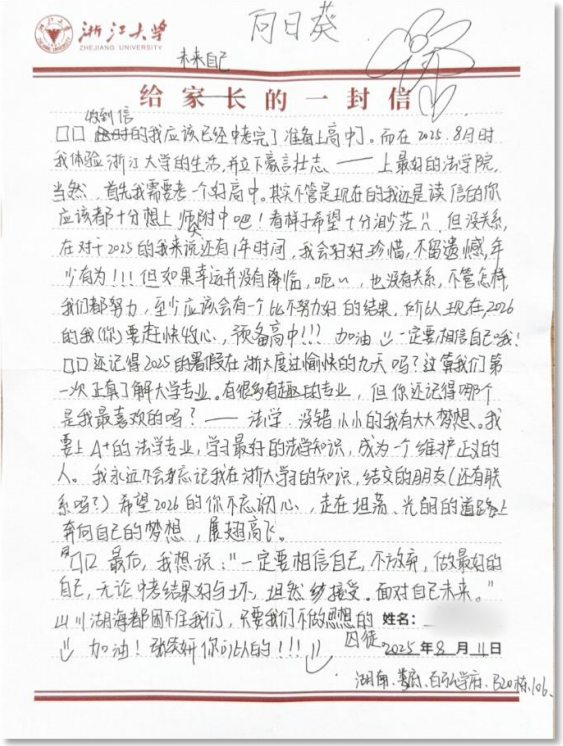 浙江大学
ZHEJIANG UNIVERSITY
向日葵
未来自己
给家长的一封信
收到信
口口 的我应该已经中考完了准备上高中了。而在2025.8月时
我体验浙江大学的生活,并立下豪言壮志 —— 上最好的法学院,
当然,首先我需要考一个好高中。其实不管是现在的我还是读信的你
应该都十分想上师附中吧!看样子希望十分渺茫,但没关系,
在对于2025的我来说还有1年时间,我会好好珍惜,不留遗憾,年
少有为!!!但如果幸运并没有降临,呃,也没有关系,不管怎样,
我们都努力,至少应该会有一个比不努力好的结果,所以现在,2026
的我(你)要赶快收心,预备高中!!!加油 一定要相信自己哦!
口口还记得2025的暑假在浙大度过愉快的九天吗?这算我们第
一次正真了解大学专业。有很多有趣的专业,但你还记得哪个
是我最喜欢的吗?—— 法学,没错小小的我有大大梦想、我
要上A+的法学专业,学习最好的法学知识,成为一个维护正义的
人。我永远不会忘记我在浙大学习的知识,结交的朋友(还有联
系吗?)希望2026的你不忘初心,走在坦荡、光明的道路上
奔向自己的梦想,展翅高飞。
口口 最后,我想说:"一定要相信自己,不放弃,做最好的
自己,无论中考结果好与坏,坦然接受。面对自己未来。"
山川湖海都困不住我们,只要我们不做思想的 姓名:
囚徒
加油! 你可以的!!!
2025年8月11日
湖南、娄底、 学府、B20栋,106.